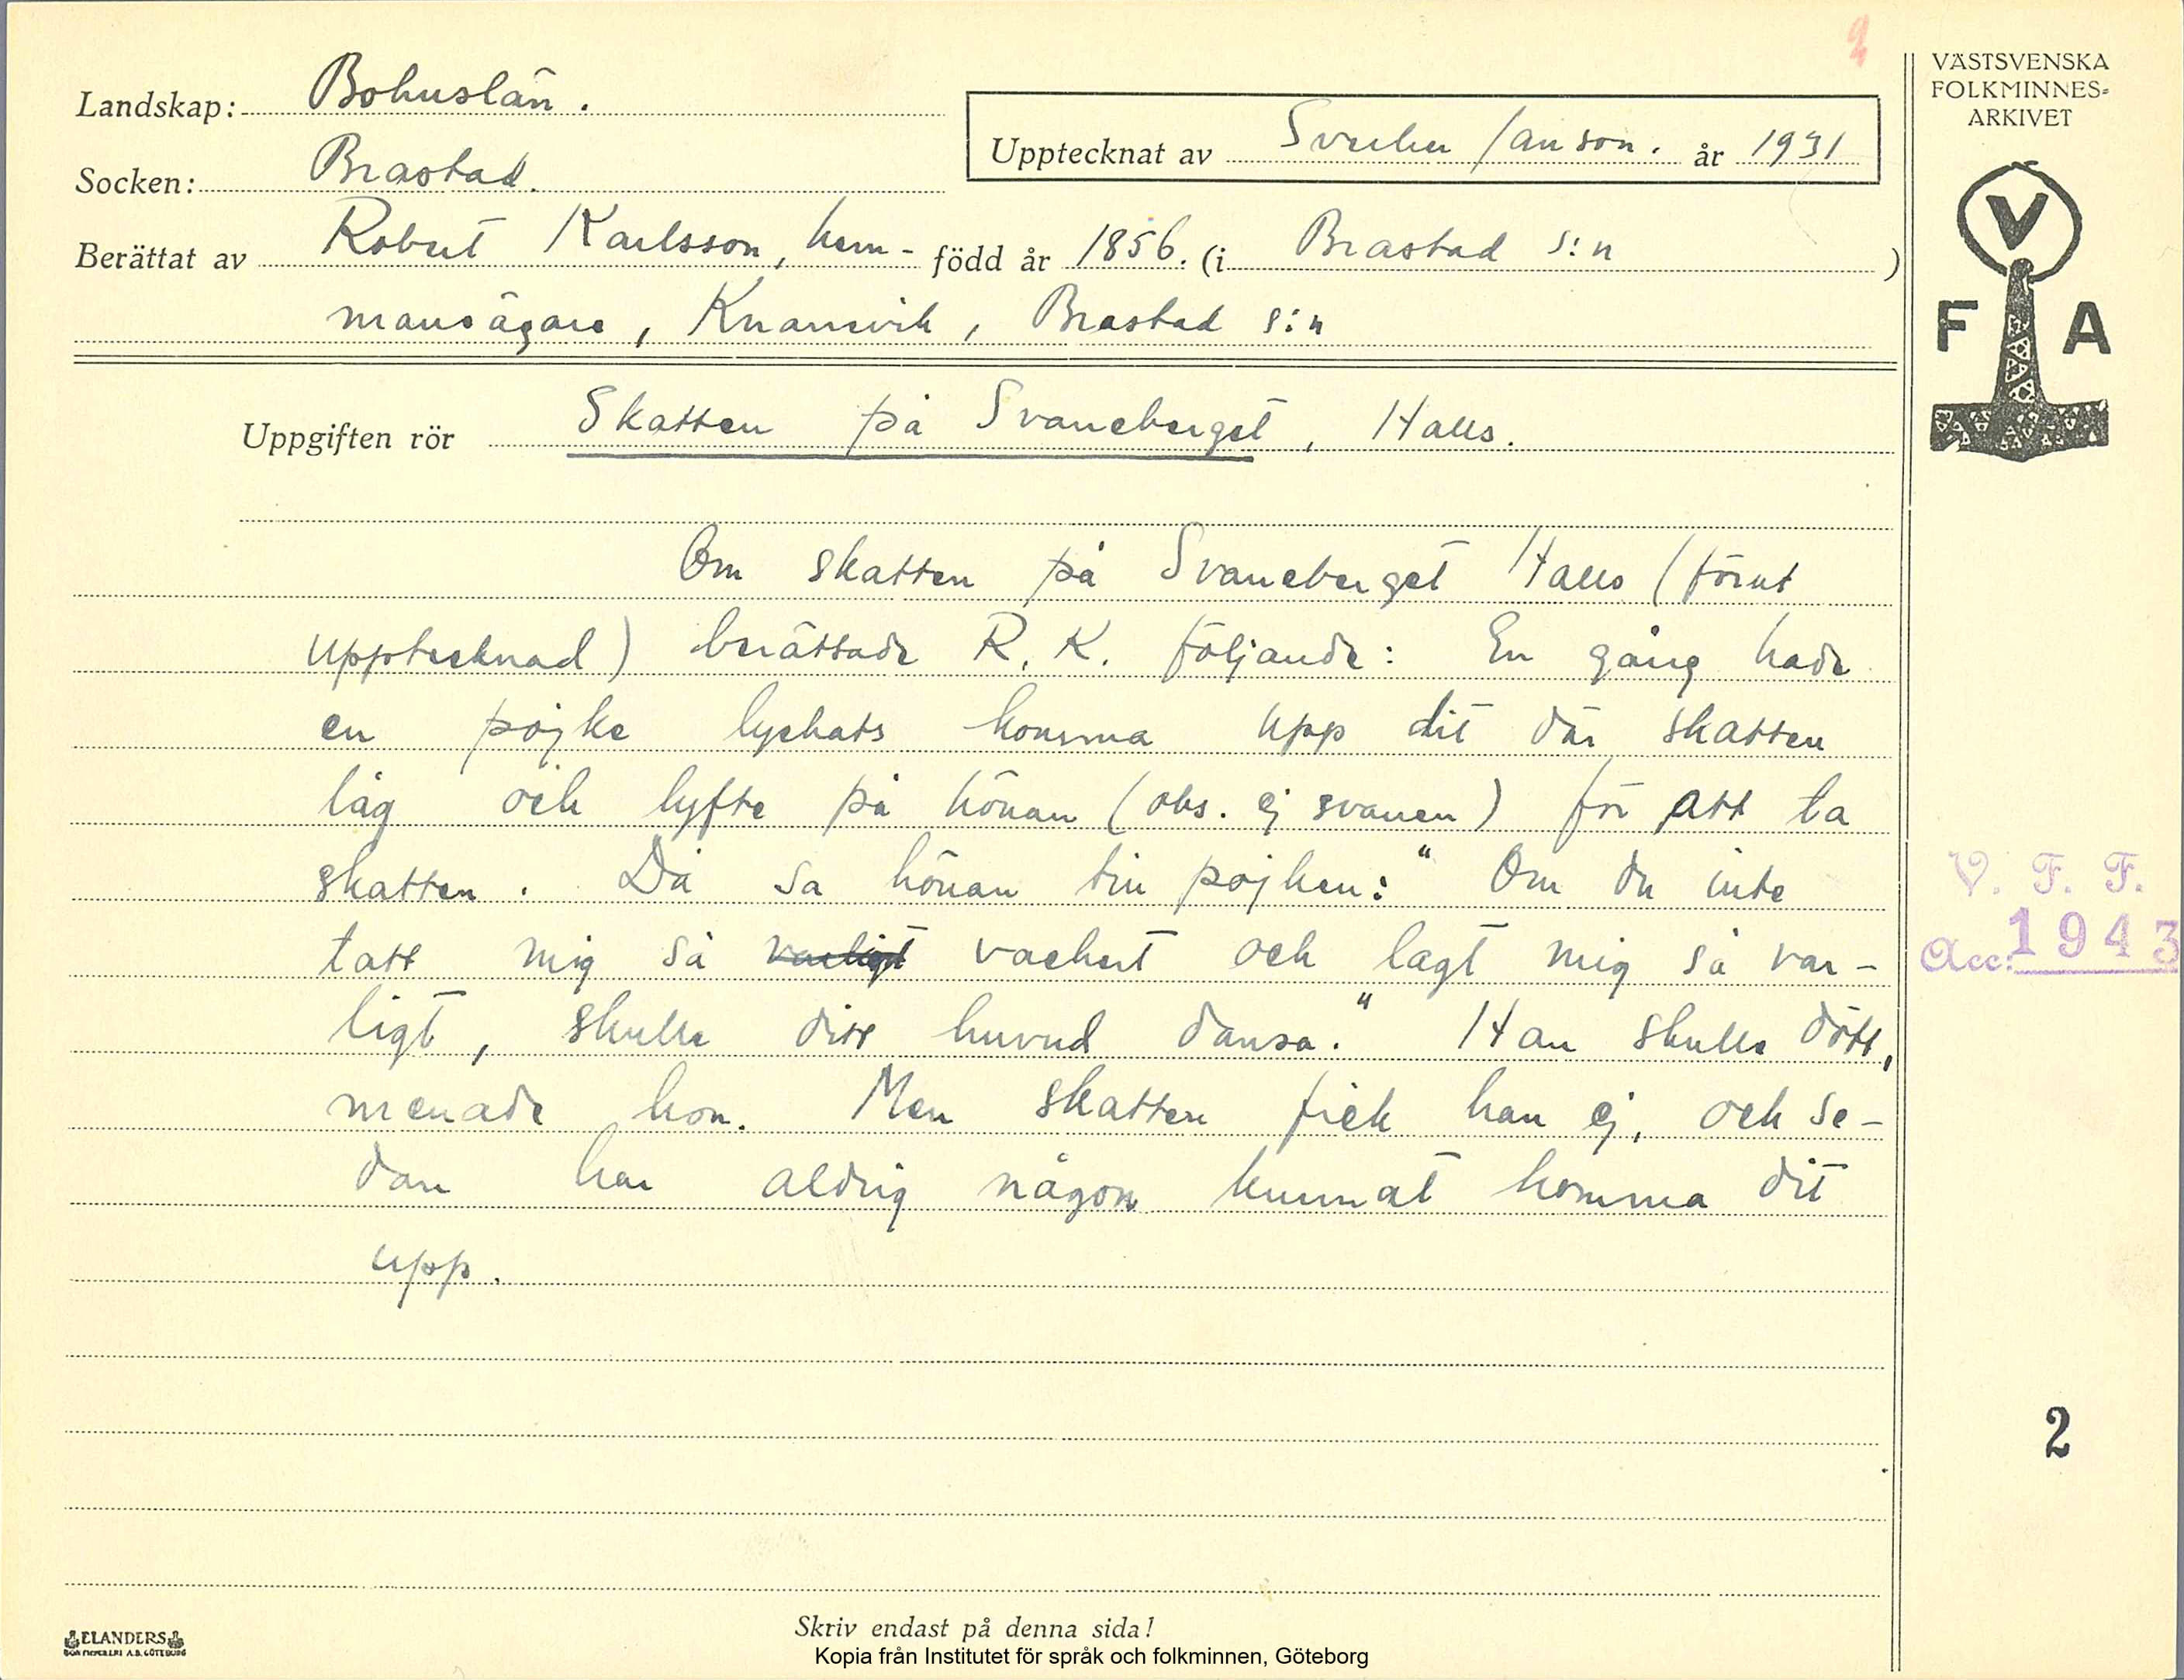 2
VÄSTSVENSKA
FOLKMINNES-
ARKIVET
Landskap: Bohuslän.
Upptecknat av Sverker Janson. år 1931
Socken: Brastad.
Berättat av Robert Karlsson, hem- född år 1856. (i Brastad s:n )
mansägare, Knarrevik, Brastad s:n
V
F A
Uppgiften rör Skatten på Svaneberget, Halls.
Om skatten på Svaneberget Halls (förut
upptecknad) berättade R. K. följande: En gång hade
en pojke lyckats komma upp dit där skatten
låg och lyfte på hönan (obs. ej svanen) för att ta
skatten. Då sa hönan till pojken: "Om du inte
tatt mig så varligt vackert och lagt mig så var-
ligt, skulle ditt huvud dansa." Han skulle dött,
menade hon. Men skatten fick han ej, och se-
dan har aldrig någon kunnat komma dit
upp.
V. F. F.
Acc: 1943
2
Skriv endast på denna sida!
ELANDERS
BOKTRYCKERI A.B. GÖTEBORG
Kopia från Institutet för språk och folkminnen, Göteborg